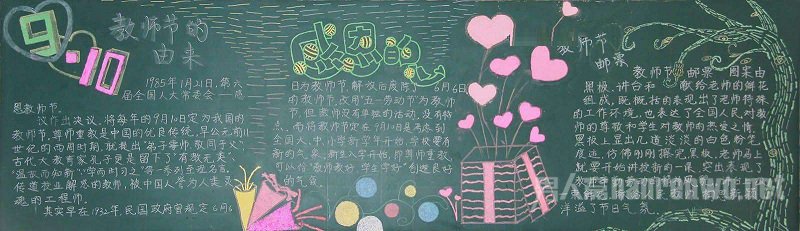 9·10
教师节的
由来
1985年1月21日,第六
届全国人大常委会一
恩教师节。
议作出决议,将每年的9月10日定为我国的
教师节。尊师重教是中国的优良传统,早公元前11
世纪的西周时期,就提出"弟子事师,敬同于父"
古代大教育家孔子更是留下了"有教无类"、
"温故而知新"、"学而时习之"等一系列至理名言。
传道授业解惑的教师,被中国人誉为人类灵
魂的工程师。
其实早在1932年,民国政府曾规定6月6
日为教师节,解放后废除了6月6日
的教师节,改用"五一劳动节"为教师
节,但教师没有单独的活动,没有特
点。而将教师节定在9月10日是考虑到
全国大、中、小学新学年开始,学校要有
新的气象。新生入学开始,即尊师重教,
可以给"教师教好、学生学好"创造良好
的气氛。
教师节
邮票
教师节 邮票 图案由
黑板、讲台和 献给老师的鲜花
组成,既概括的表现出了老师特殊
的工作环境,也表达了全国人民对教
师的尊敬和学生对教师的热爱之情。
黑板上显出几道淡淡的白色粉笔
痕迹,仿佛刚刚擦完黑板,老师马上
就要开始讲授新的一课,突出表现了
洋溢了节日气氛。
nanrenwo.net